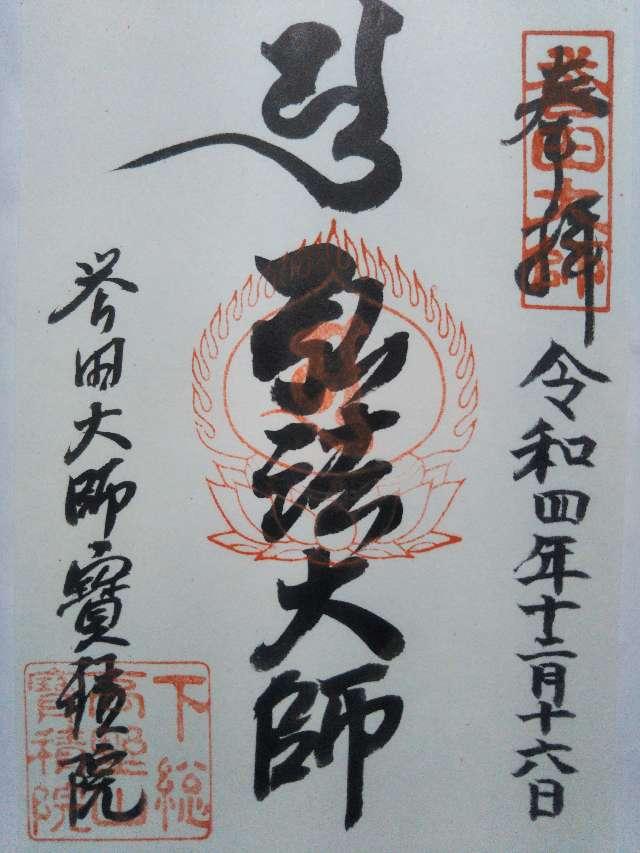 奉拝
令和四年十二月十六日
弘法大師
誉田大師寶積院
誉田大師
下総
高野山
寶積院